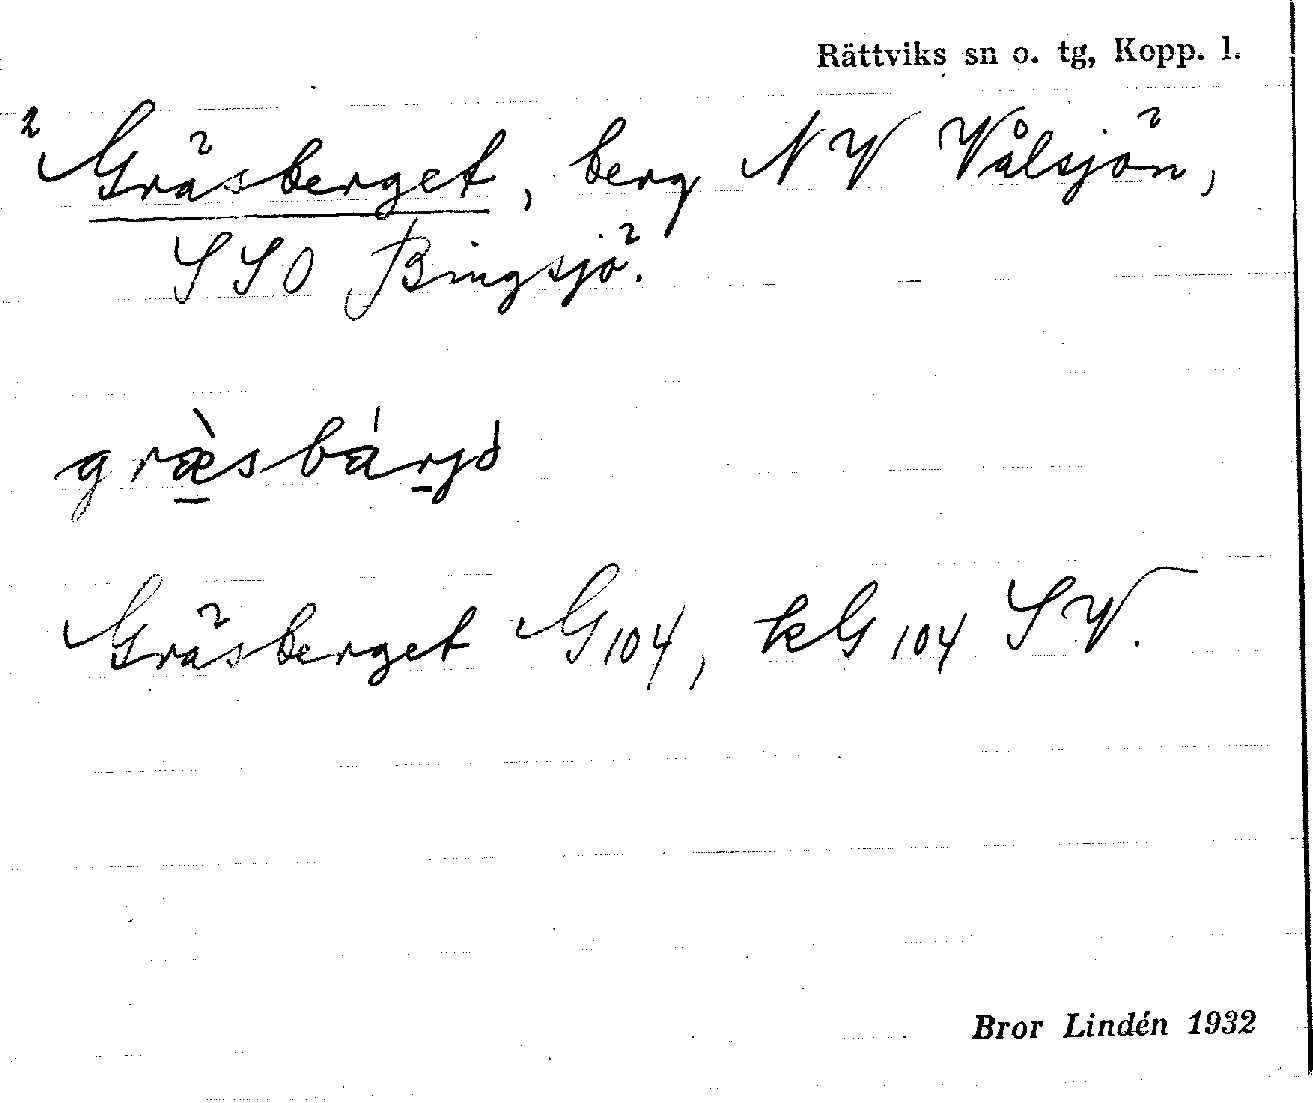 Rättviks sn o. tg, Kopp. l.
² Gräsberget, berg NV Vålsjön,
SSO Bingsjö.
græ̀sbárjò
Gräsberget G104, kG104 SV.
Bror Lindén 1932